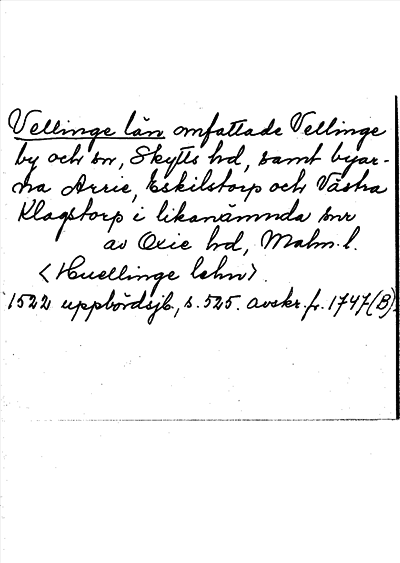 Vellinge län omfattade Vellinge
by och sn, Skytts hd, samt byar-
na Arrie, Eskilstorp och Västra
Klagstorp i likanämnda snr
av Oxie hd, Malm. l.
<Huellinge lehn>.
1522 uppbördsjb, s. 525. avskr. fr. 1747(B).